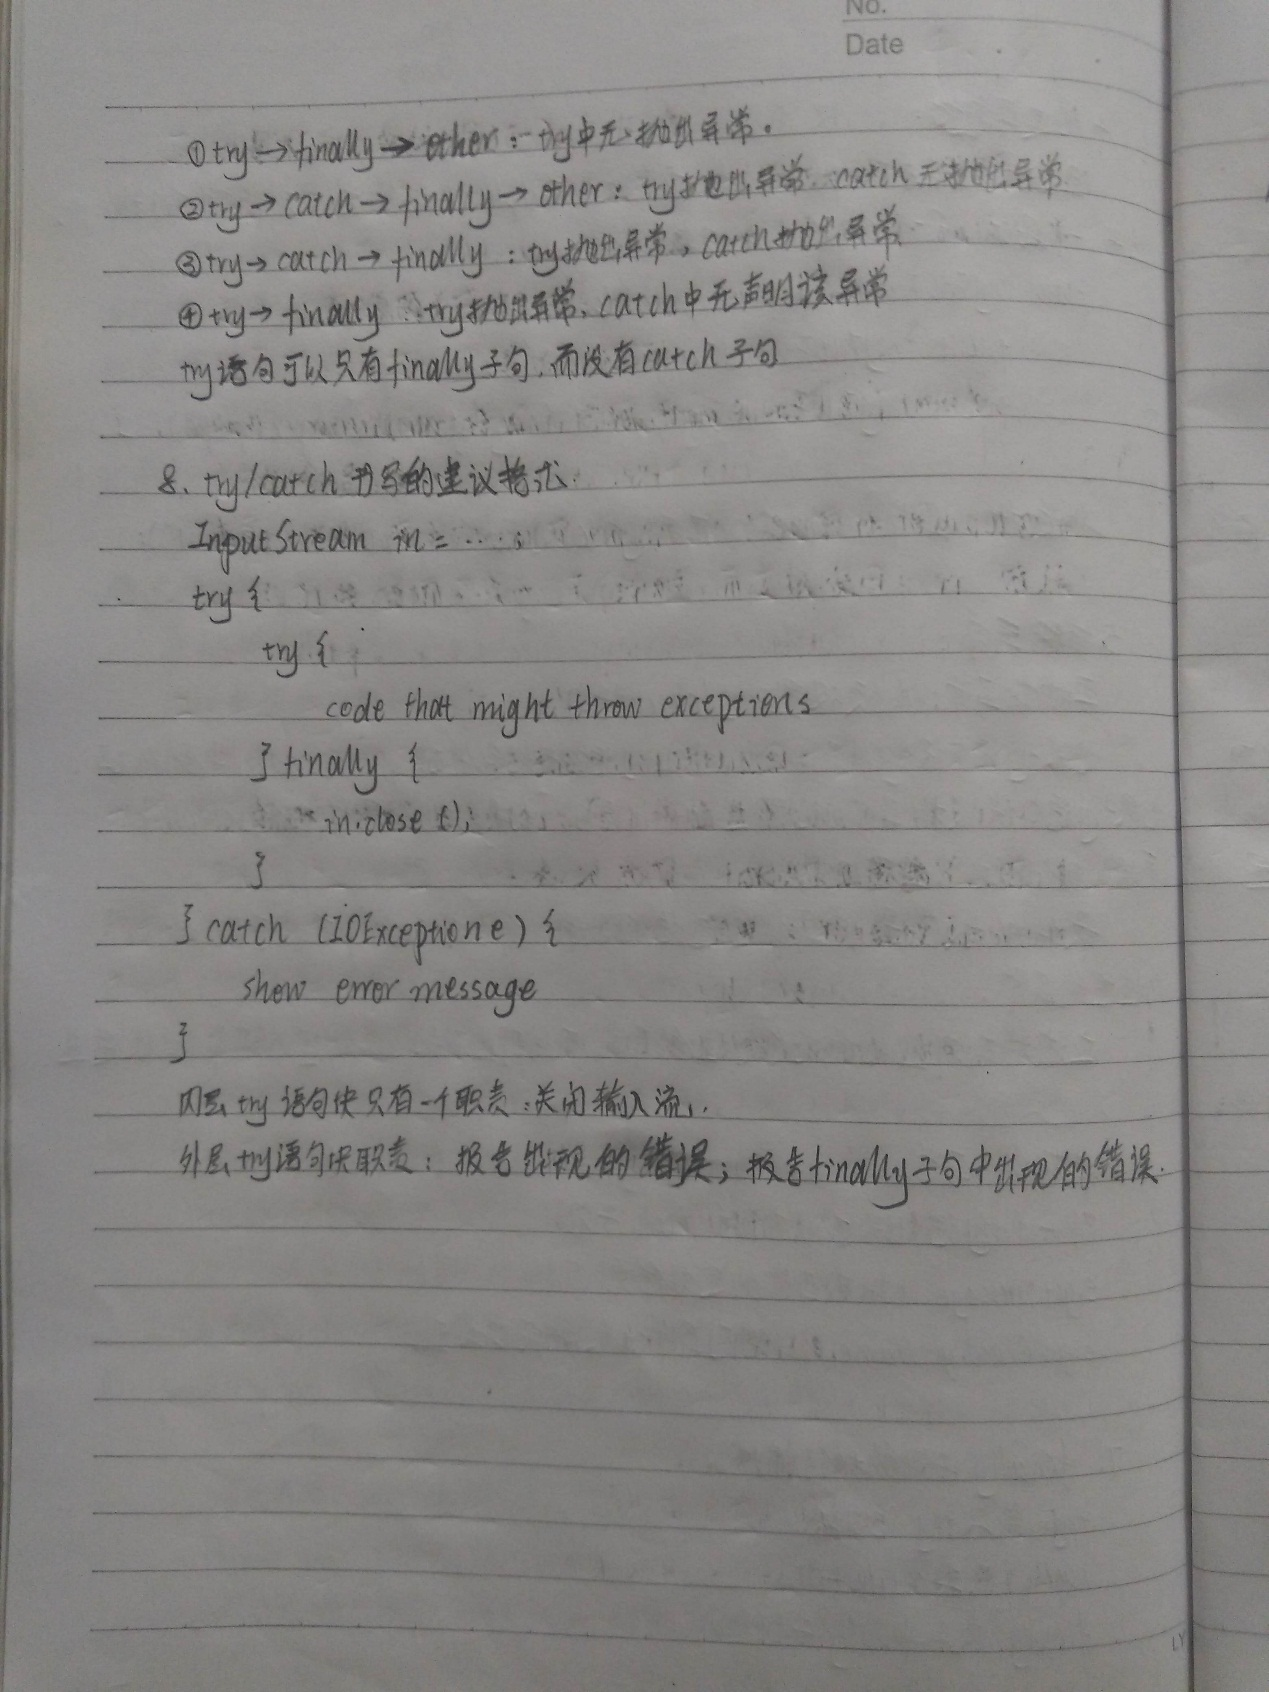 No.
Date
①try→finally→other：try中无抛出异常。
②try→catch→finally→other：try抛出异常，catch无抛出异常
③try→catch→finally：try抛出异常，catch抛出异常
④try→finally：try抛出异常，catch中无声明该异常
try语句可以只有finally子句，而没有catch子句
8、try/catch书写的建议格式
InputStream in = ...;
try {
try {
code that might throw exceptions
} finally {
in.close();
}
} catch (IOException e) {
show error message
}
内层try语句块只有一个职责：关闭输入流，
外层try语句块职责：报告出现的错误；报告finally子句中出现的错误.